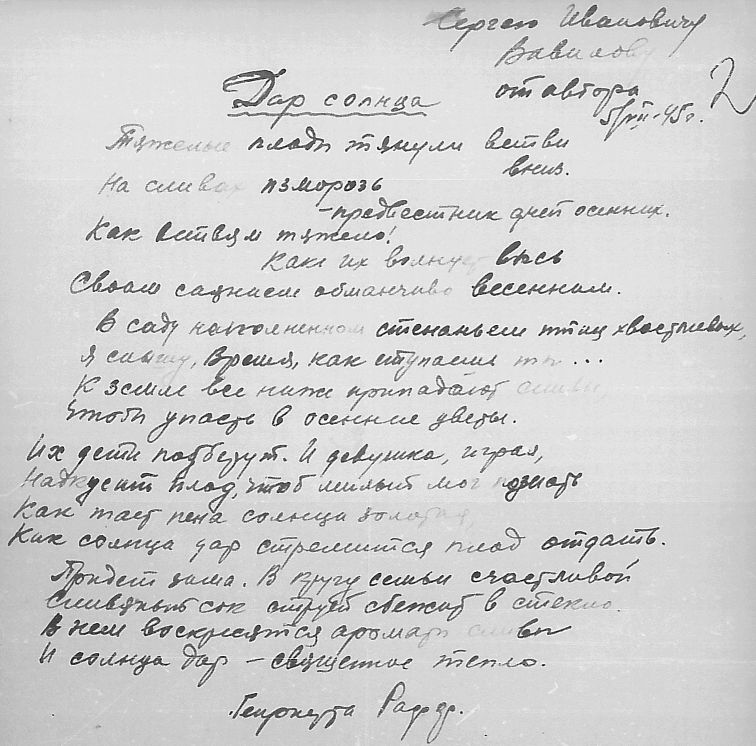 Сергею Ивановичу
Вавилову
от автора
5/VII-45г.
2
Дар солнца
Тяжелые плоды тянули ветви
вниз.
На сливах изморозь
- предвестник дней осенних.
Как ветвям тяжело!
Как их волнует высь
Своим сиянием обманчиво весенним.
В саду наполненном стенаньем птиц хвастливых,
Я слышу, Время, как ступаешь ты...
К земле все ниже припадают сливы,
Чтобы упасть в осенние цветы.
Их дети подберут. И девушка, играя,
Надкусит плод, чтоб милый мог познать
Как тает пена солнца золотая,
Как солнца дар стремится плод отдать.
Придет зима. В кругу семьи счастливой
Сливянный сок струей сбежит в стекло.
В нем воскресятся ароматы сливы
И солнца дар - священное тепло.